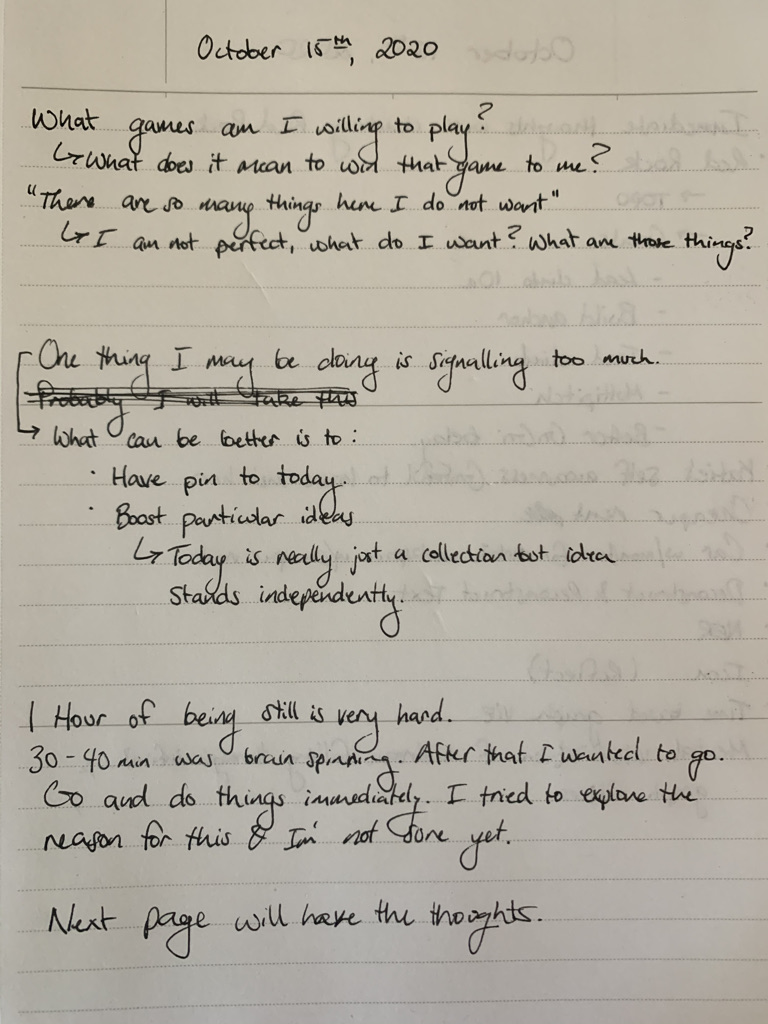 October 15th, 2020
What games am I willing to play?
↳ What does it mean to win that game to me?
"There are so many things here I do not want"
↳ I am not perfect, what do I want? What are those things?
One thing I may be doing is signalling too much.
Probably I will take this
→ What can be better is to:
· Have pin to today.
· Boost particular ideas
↳ Today is really just a collection but idea
stands independently.
1 Hour of being still is very hard.
30-40 min was brain spinning. After that I wanted to go.
Go and do things immediately. I tried to explore the
reason for this & Im' not done yet.
Next page will have the thoughts.